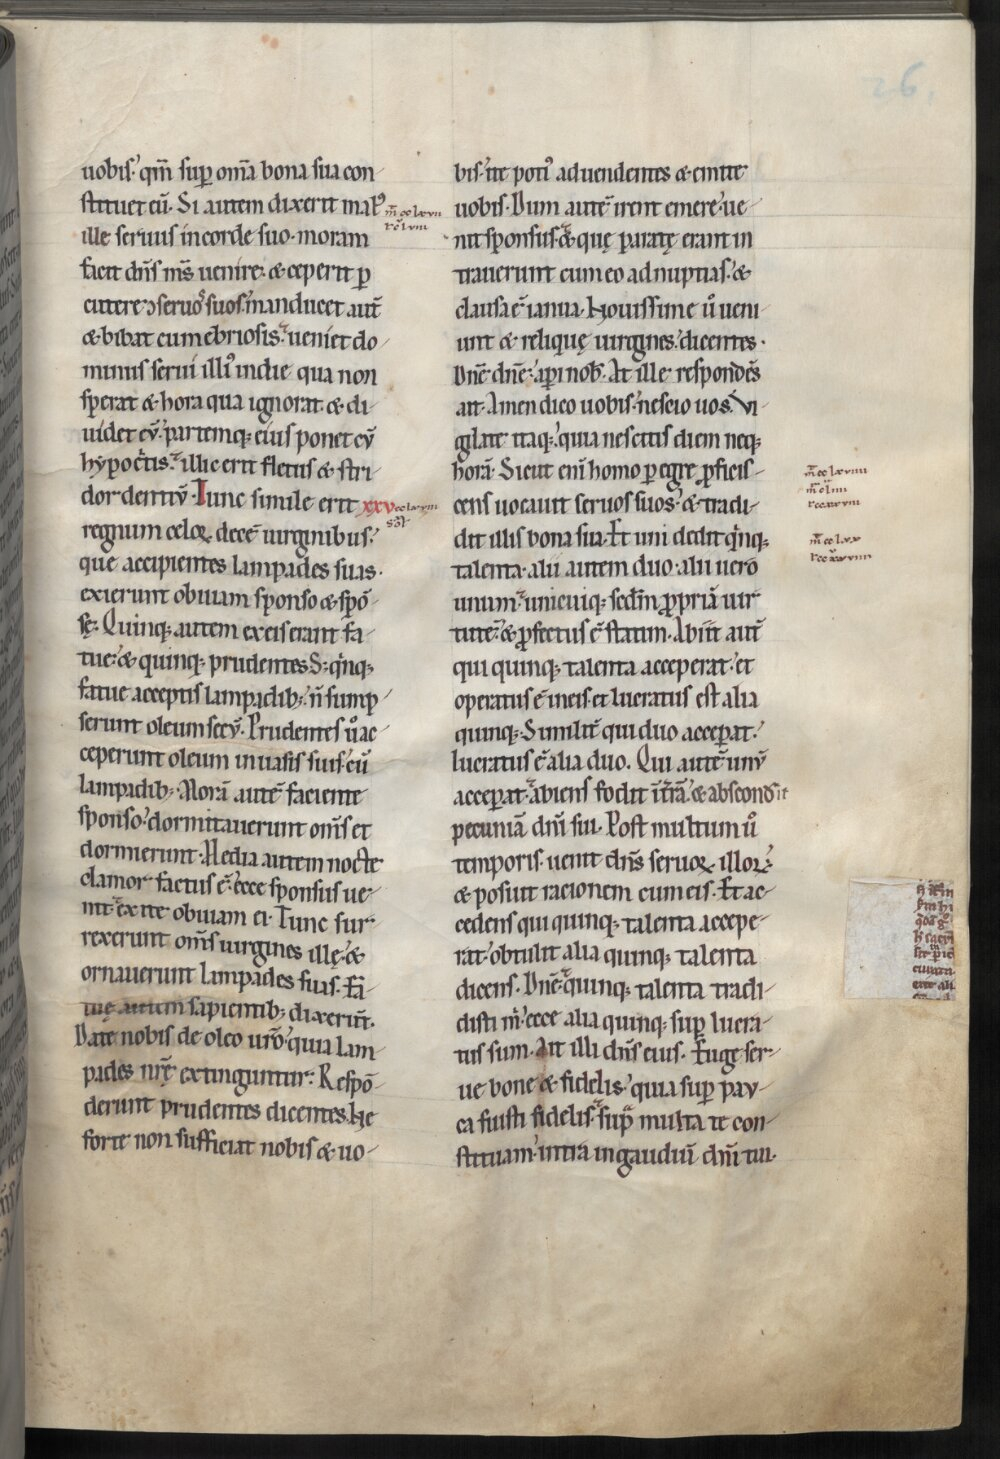 26.
uobis. qm̄ suꝑ om̄a bona sua con
stituet eū. Si autem dixerit mal᷒
ille seruus in corde suo. moram
facit dn̄s m̄s uenire. & ceperit ꝑ
cutere ↄseruos suos. manducet aut̄
& bibat cum ebriosis. ueniet do
minus serui illi᷒ in die qua non
sperat & hora qua ignorat. & di
uidet eū. partemq; eius ponet cū
hypoc̄tis. illic erit fletus & stri
dor dentiū. Tunc simile erit xxv
regnum celoꝝ. decē uirginibus.
que accipientes lampades suas.
exierunt obuiam sponso & spō
sę. Quinq; autem ex eis erant fa
tuę. & quinq; prudentes. S; q̄nq;
fatue acceptis lampadib; n̄ sump
serunt oleum secū. Prudentes u͛o ac
ceperunt oleum in uasis suis cū
lampadib;. Morā autē faciente
sponso. dormitauerunt om̄s et
dormierunt. Media autem nocte
clamor factus ē. ecce sponsus ue
nit. exite obuiam ei. Tunc sur
rexerunt om̄s uirgines illę. &
ornauerunt lampades suas. Fa
tuę autem sapientib; dixerūt.
Date nobis de oleo ur̄o. quia lam
pades nr̄ę extinguntur. Respō
derunt prudentes dicentes. Ne
forte non sufficiat nobis & uo
bis. ite poti᷒ ad uendentes & emite
uobis. Dum autē irent emere. ue
nit sponsus. & quę paratę erant in
trauerunt cum eo ad nuptias. &
clausa ē ianua. Nouissime u͛o ueni
unt & reliquę uirgines. dicentes.
Dn̄e dn̄e. aꝑi nob̄. At ille respondēs
ait. Amen dico uobis. nescio uos. Vi
gilate itaq; quia nescitis diem neq;
horā. Sicut enī homo ꝑegre ꝓficis
cens uocauit seruos suos. & tradi
dit illis bona sua. Et uni dedit q̄nq;
talenta. alii autem duo. alii uero
unum. unicuiq; scdm̄ ꝓpriā uir
tutē. & ꝓfectus ē statim. Abiit aut̄
qui quinq; talenta acceperat. et
operatus ē in eis. et lucratus est alia
quinq;. Similit̄ qui duo acceꝑat.
lucratus ē alia duo. Qui autē unū
acceꝑat. abiens fodit ī t̄rā. & abscondit
pecuniā dn̄i sui. Post multum u͛o
temporis. uenit dn̄s seruoꝝ illoꝝ.
& posuit racionem cum eis. Et ac
cedens qui quinq; talenta accepe
rat. obtulit alia quinq; talenta
dicens. Dn̄e. quinq; talenta tradi
disti m̄. ecce alia quinq; suꝑ lucra
tus sum. Ait illi dn̄s eius. Euge ser
ue bone & fidelis. quia suꝑ pau
ca fuisti fidelis. supra multa te con
stituam. intra in gaudiū dn̄i tui.